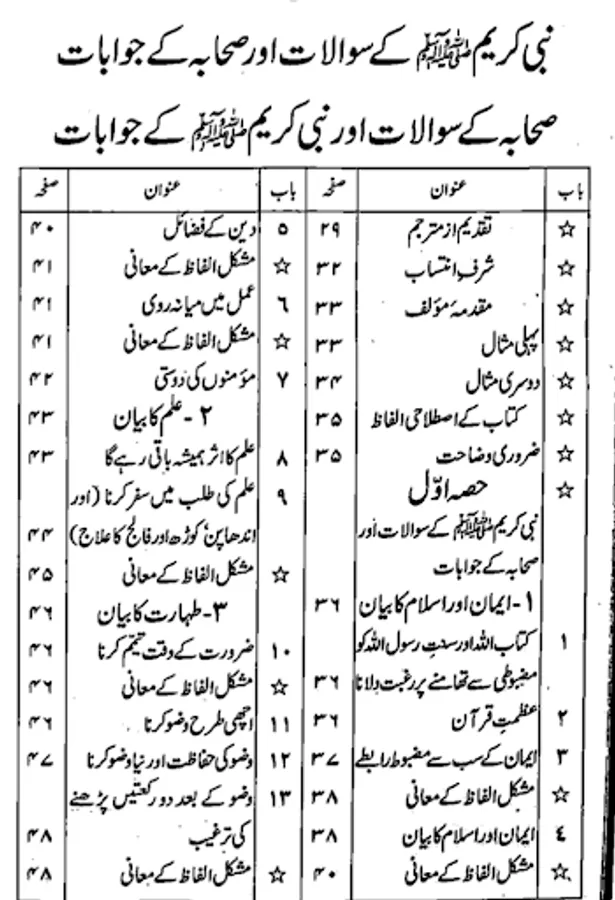 نبی کریم ﷺ کے سوالات اور صحابہ کے جوابات
صحابہ کے سوالات اور نبی کریم ﷺ کے جوابات
باب عنوان صفحہ
☆ تقدیم از مترجم ۲۹
☆ شرف انتساب ۳۲
☆ مقدمۂ مؤلف ۳۳
☆ پہلی مثال ۳۳
☆ دوسری مثال ۳۴
☆ کتاب کے اصطلاحی الفاظ ۳۵
☆ ضروری وضاحت ۳۵
☆ حصہ اوّل
نبی کریم ﷺ کے سوالات اور
صحابہ کے جوابات
۱- ایمان اور اسلام کا بیان ۳۶
۱ کتاب اللہ اور سنتِ رسول اللہ کو
مضبوطی سے تھامنے پر رغبت دلانا ۳۶
۲ عظمتِ قرآن ۳۶
۳ ایمان کے سب سے مضبوط رابطے ۳۷
☆ مشکل الفاظ کے معانی ۳۸
٤ ایمان اور اسلام کا بیان ۳۸
☆ مشکل الفاظ کے معانی ۴۰
باب عنوان صفحہ
۵ دین کے فضائل ۴۰
☆ مشکل الفاظ کے معانی ۴۱
۶ عمل میں میانہ روی ۴۱
☆ مشکل الفاظ کے معانی ۴۱
۷ مؤمنوں کی دوستی ۴۲
۲- علم کا بیان ۴۳
۸ علم کا اثر ہمیشہ باقی رہے گا ۴۳
۹ علم کی طلب میں سفر کرنا (اور
اندھا پن‘ کوڑھ اور فالج کا علاج) ۴۴
☆ مشکل الفاظ کے معانی ۴۵
۳- طہارت کا بیان ۴۶
۱۰ ضرورت کے وقت تیمّم کرنا ۴۶
☆ مشکل الفاظ کے معانی ۴۶
۱۱ اچھی طرح وضو کرنا ۴۶
۱۲ وضو کی حفاظت اور نیا وضو کرنا ۴۷
۱۳ وضو کے بعد دو رکعتیں پڑھنے
کی ترغیب ۴۸
☆ مشکل الفاظ کے معانی ۴۸